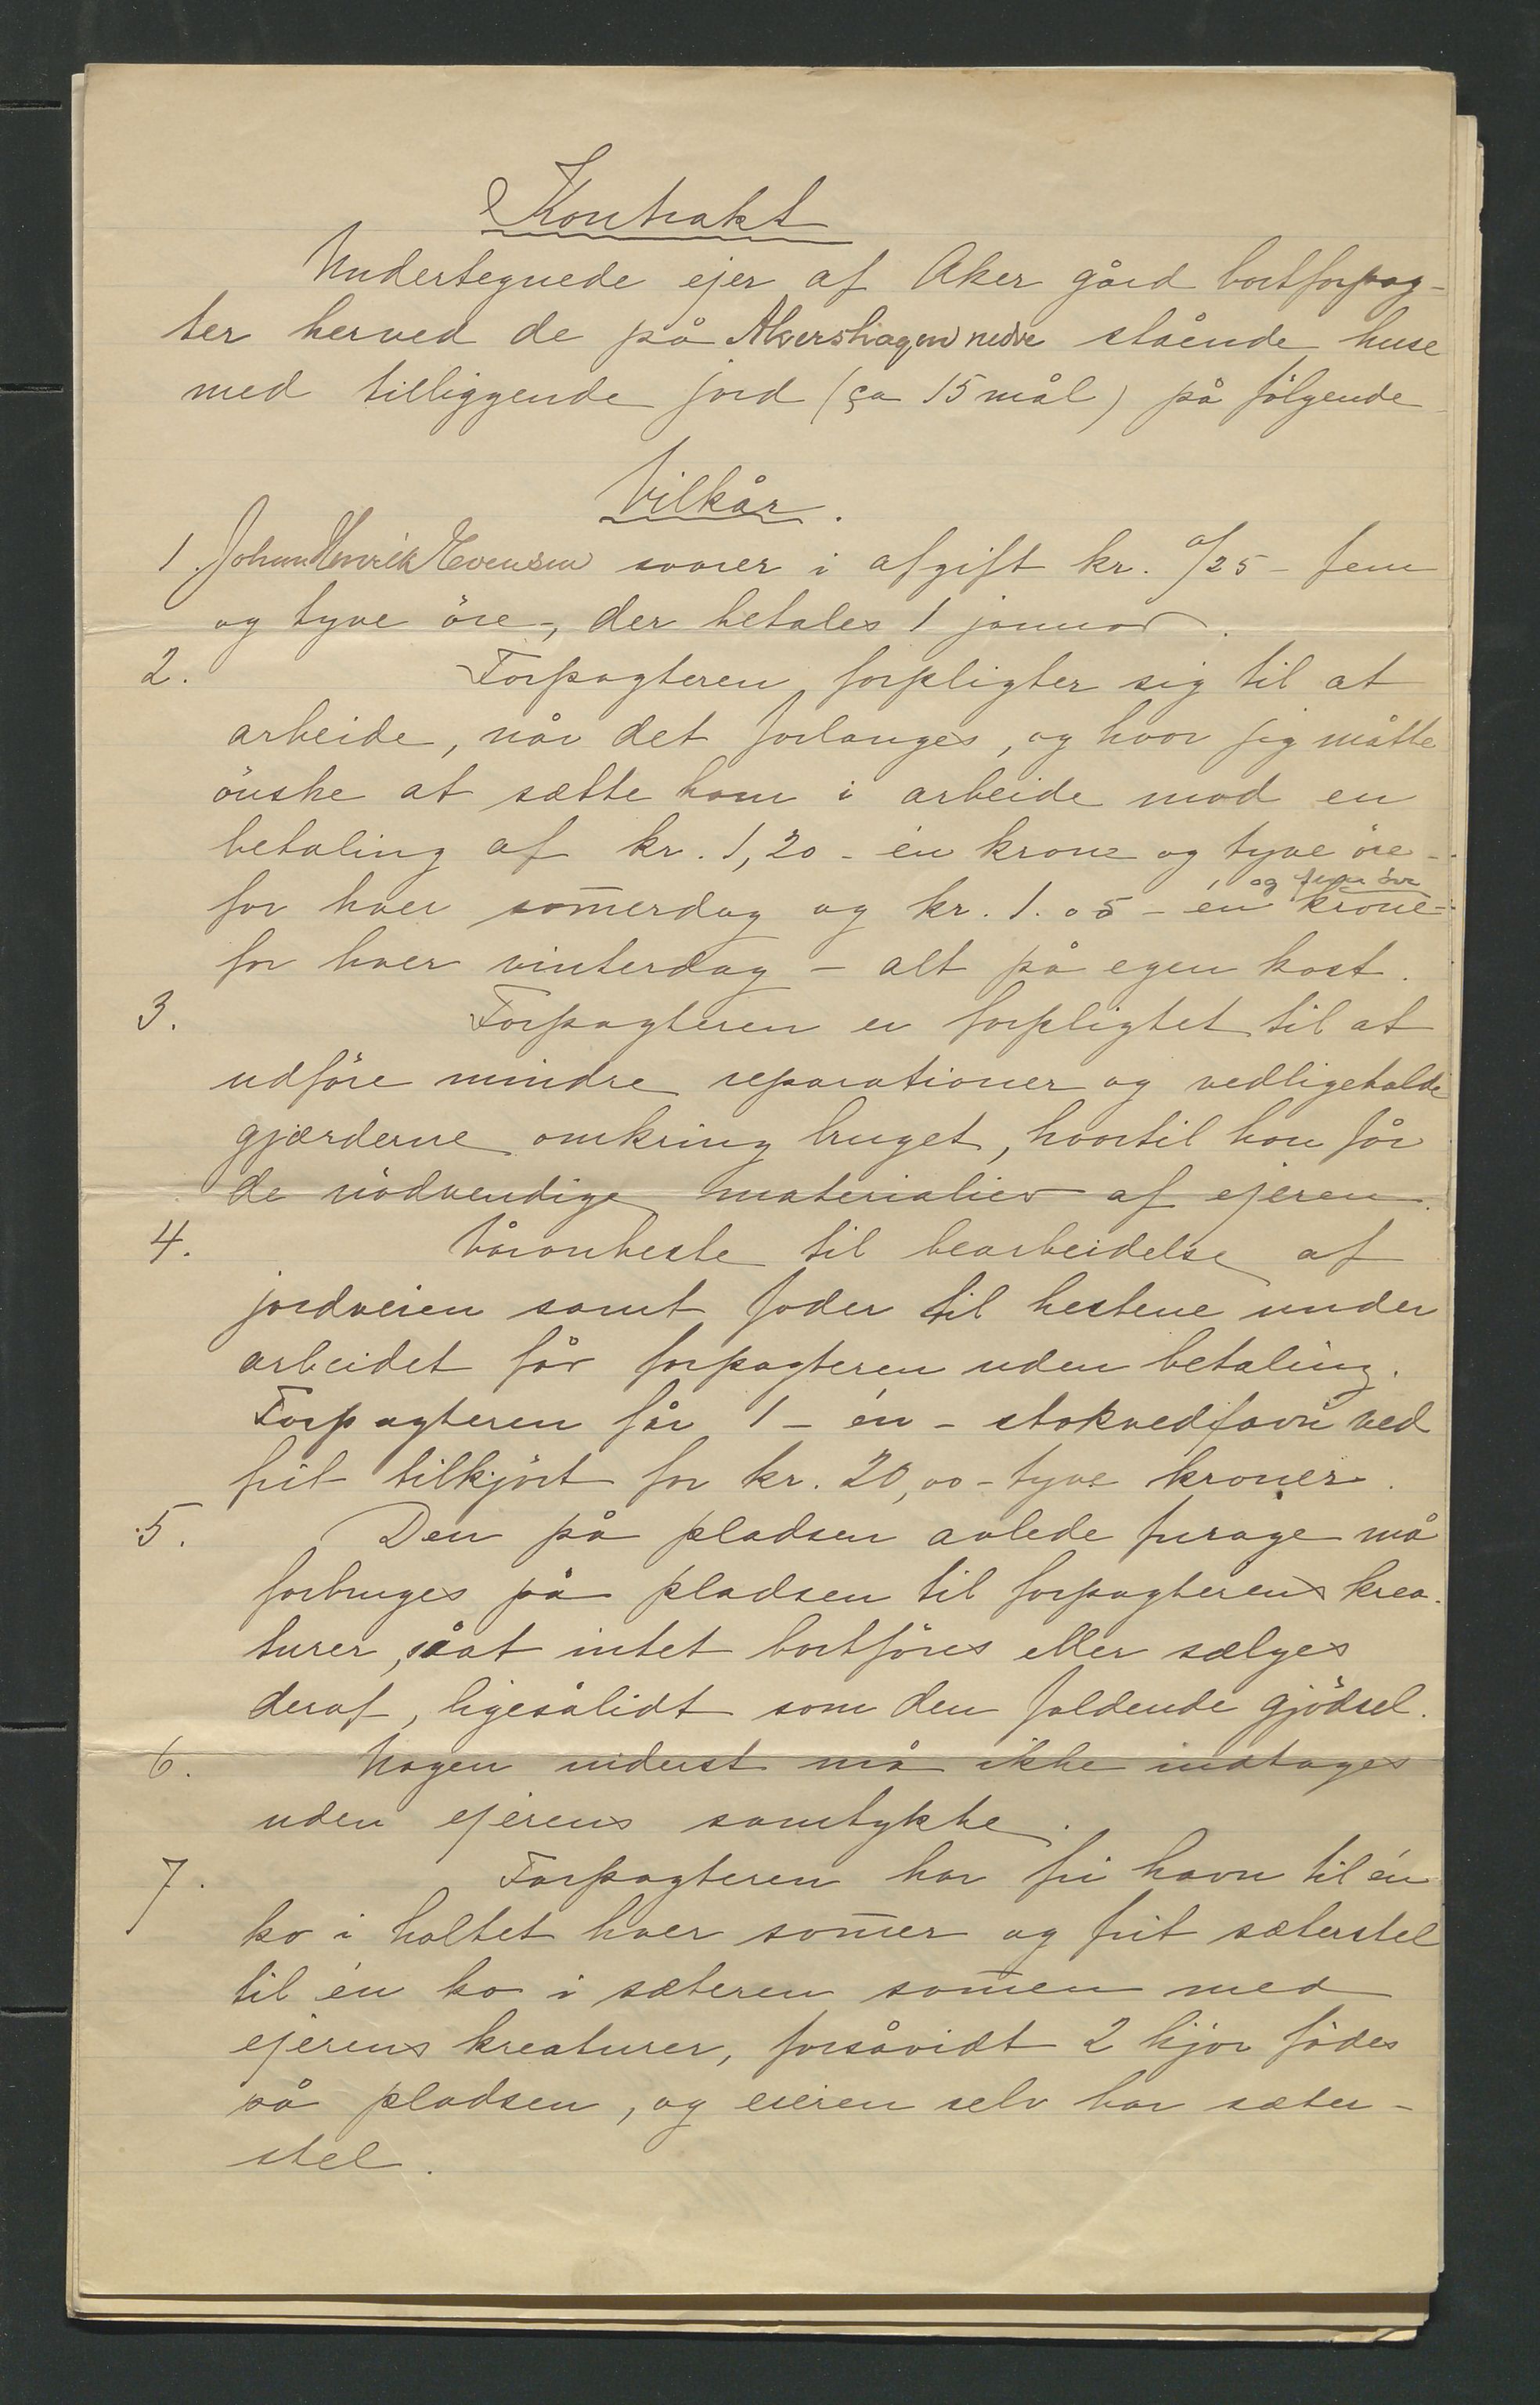 Kontrakt
Undertegnede ejer af Aker gård bortforpag-
ter herved de på Akershagen nedre stående huse
med tilliggende jord (ca 15 mål) på fölgende
Vilkår.
1. Johan Henrik Evensen svarer i afgift kr. 0/25 - fem
og tyve öre -, der betales 1 januar.
2. Forpagteren forpligter sig til at
arbeide, når det forlanges, og hvor jeg måtte
önske at sætte ham i arbeide mod en
betaling af kr. 1,20 - én krone og tyve öre -
og fem öre
for hver som̅erdag og kr. 1.05 - én krone -
for hver vinterdag - alt på egen kost.
3. Forpagteren er forpligtet til at
udföre mindre reparationer og vedligeholde
gjærderne omkring bruget, hvortil han får
de nödvendige materialier af ejeren.
4. Våronheste til bearbeidelse af
jordveien samt foder til hestene under
arbeidet får forpagteren uden betaling.
Forpagteren får 1 - én - stokvedfavn ved
frit tilkjört for kr. 20,00 - tyve kroner.
5. Den på pladsen avlede furage må
forbruges på pladsen til forpagterens krea-
turer, såat intet bortföres eller sælges
deraf, ligesålidt som den faldende gjödsel.
6. Nogen inderst må ikke indtages
uden ejerens samtykke.
7. Forpagteren har fri havn til én
ko i holtet hver som̅er og frit sæterstel
til én ko i sæteren sam̅en med
ejerens kreaturer, forsåvidt 2 kjör födes
på pladsen, og eieren selv har sæter-
stel.